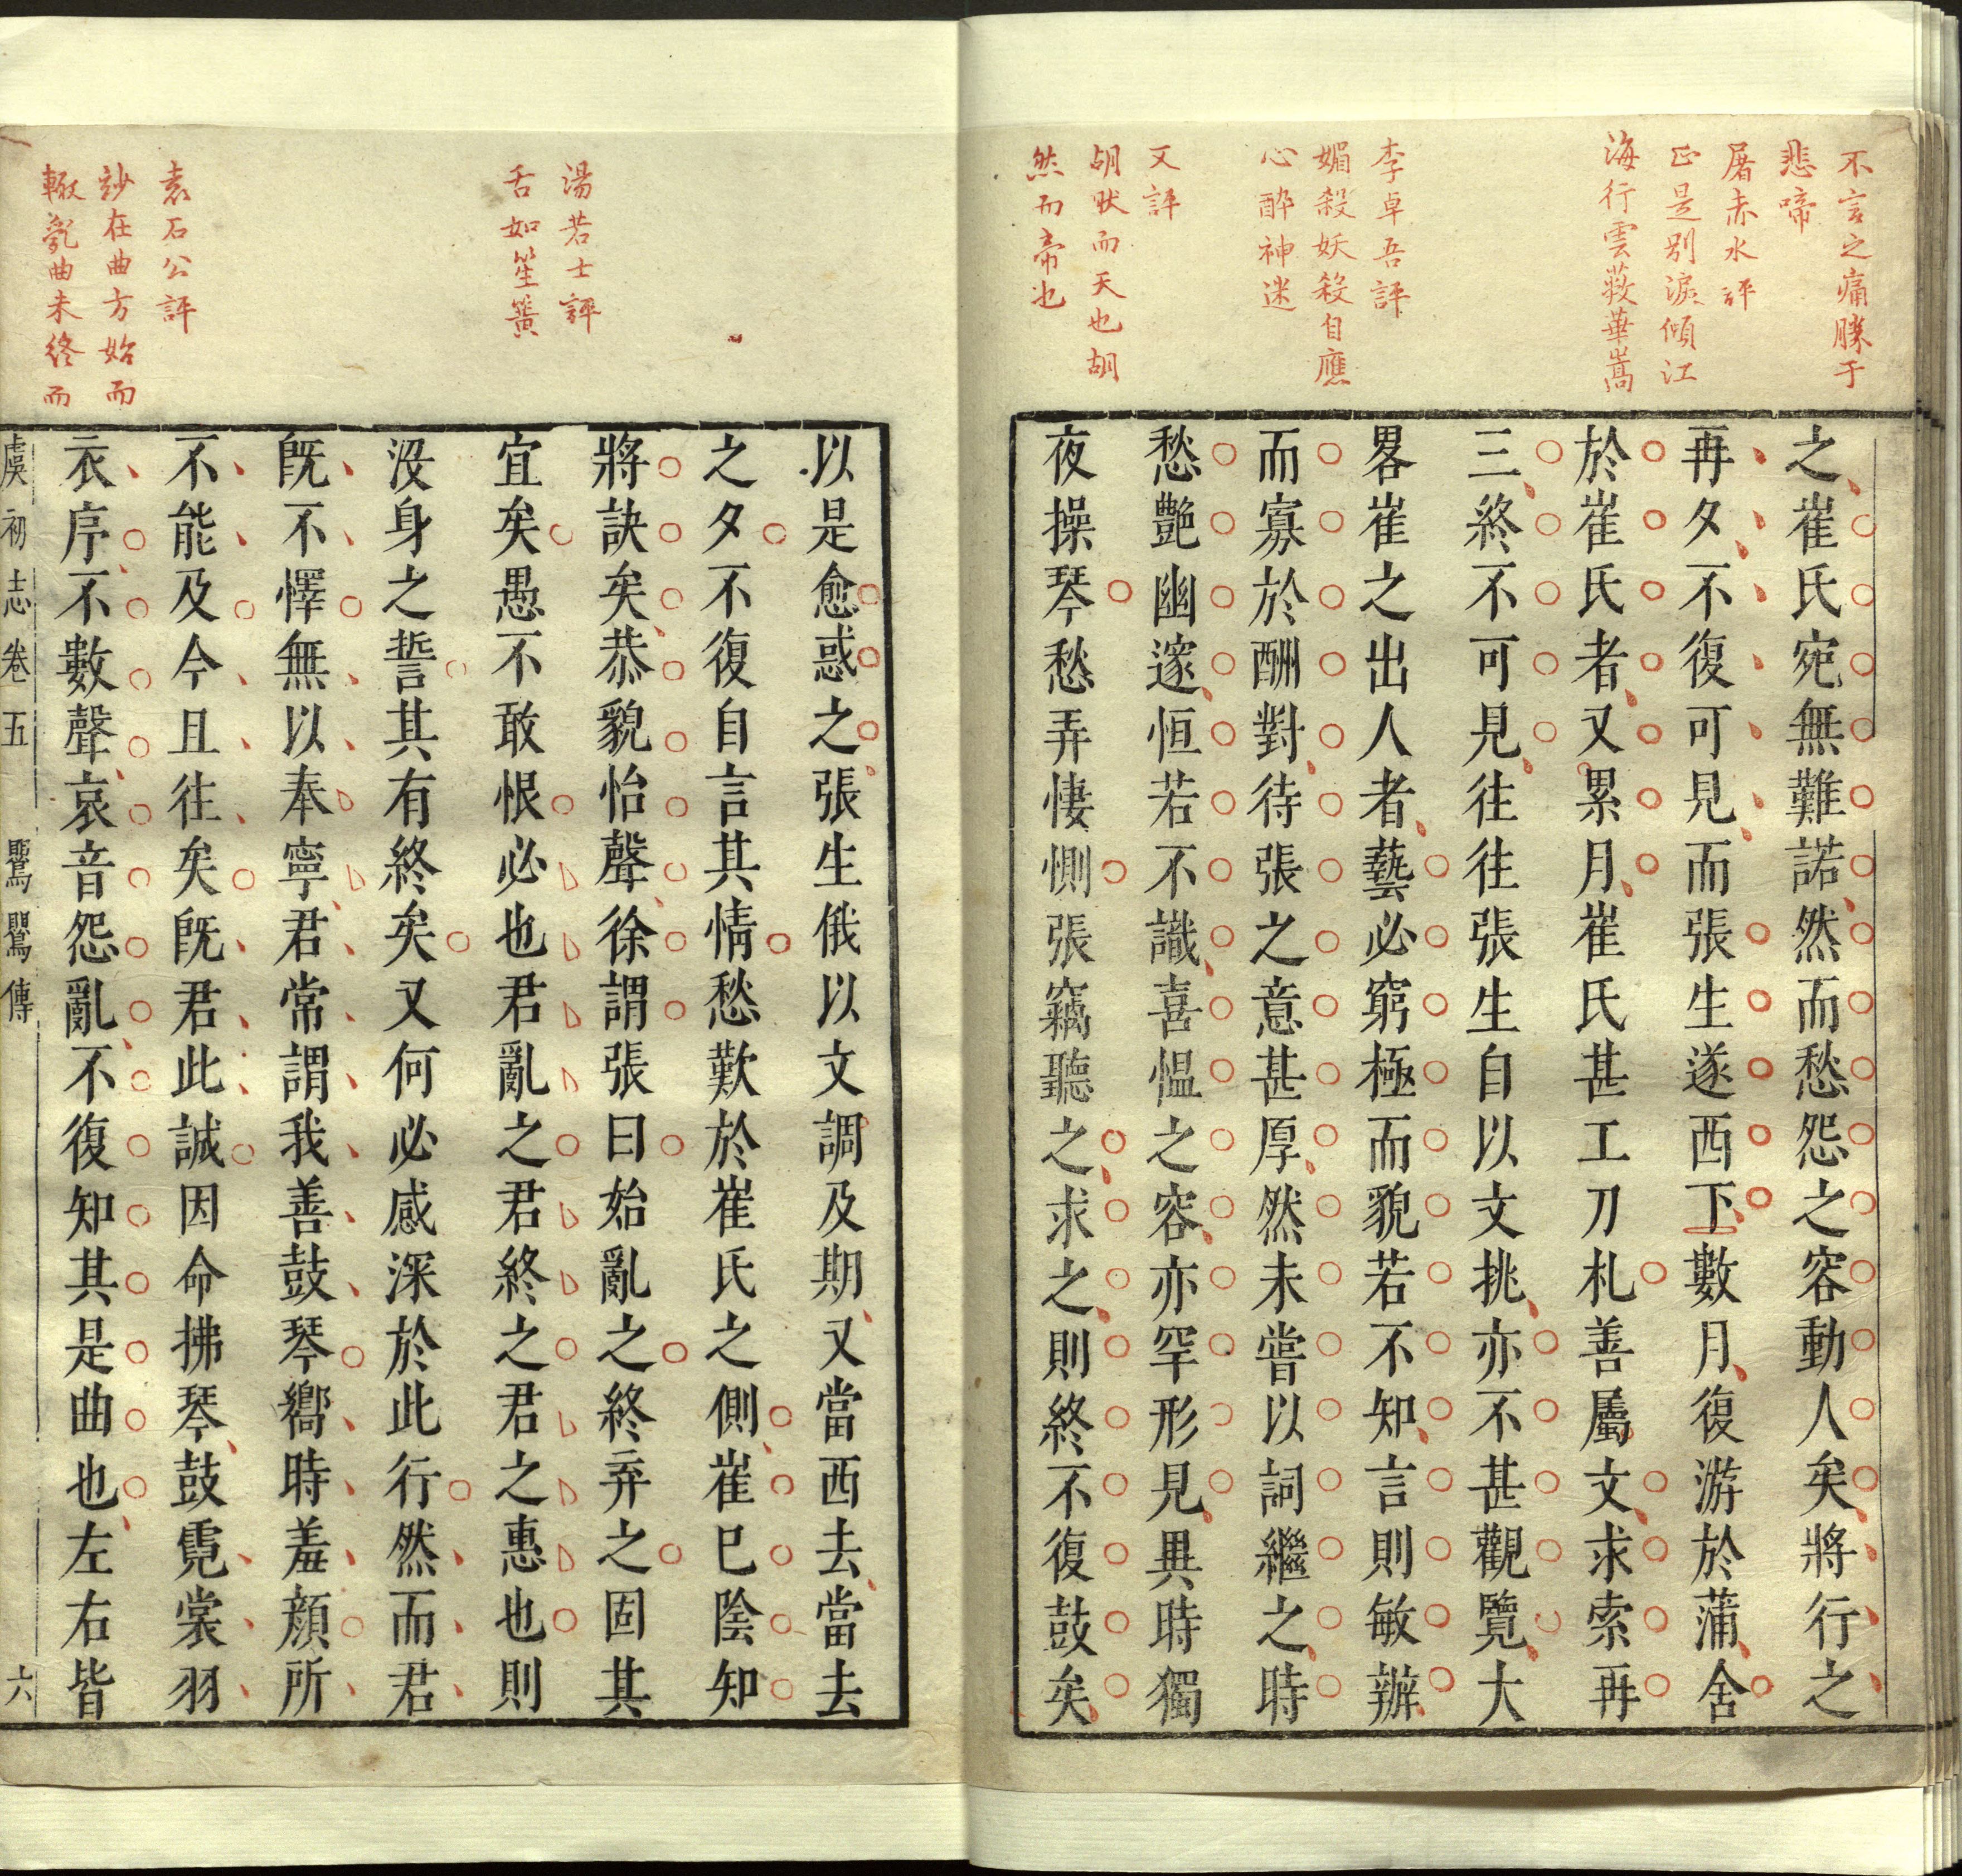 不言之痛勝于
悲啼
屠赤水評
正是別淚傾江
海行雲蔽華嵩
李卓吾評
媚殺妖殺自應
心醉神迷
又評
胡狀而天也胡
然而帝也
之崔氏宛無難諾然而愁怨之容動人矣將行之
再夕不復可見而張生遂西下數月復游於蒲舍
於崔氏者又累月崔氏甚工刀札善屬文求索再
三終不可見往往張生自以文挑亦不甚觀覽大
畧崔之出人者藝必窮極而貌若不知言則敏辯
而寡於酬對待張之意甚厚然未嘗以詞繼之時
愁艷幽邃恒若不識喜慍之容亦罕形見異時獨
夜操琴愁弄悽惻張竊聽之求之則終不復鼓矣
湯若士評
舌如笙簧
袁石公評
玅在曲方始而
輒亂曲未終而
以是愈惑之張生俄以文調及期又當西去當去
之夕不復自言其情愁歎於崔氏之側崔巳陰知
將訣矣恭貌怡聲徐謂張曰始亂之終弃之固其
宜矣愚不敢恨必也君亂之君終之君之惠也則
沒身之誓其有終矣又何必感深於此行然而君
旣不懌無以奉寧君常謂我善鼓琴嚮時羞顏所
不能及今且往矣旣君此誠因命拂琴鼓霓裳羽
衣序不數聲哀音怨亂不復知其是曲也左右皆
虞初志卷五 鸎鸎傳 六